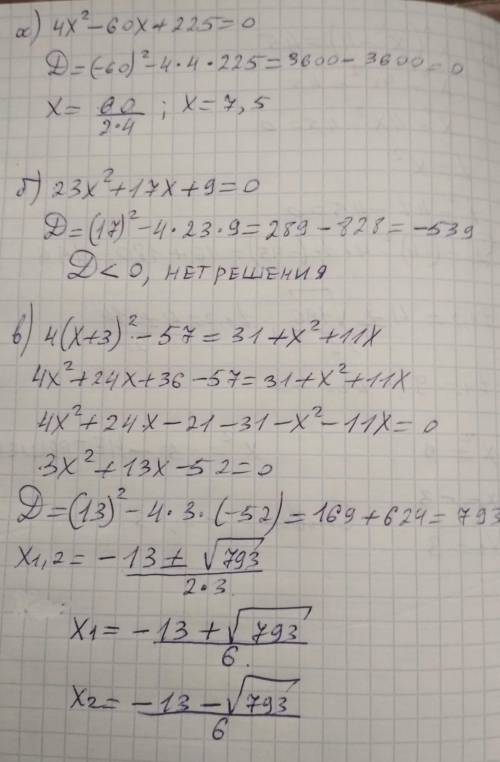 а) 4x²-60x+225=0
D=(-60)²-4·4·225=3600-3600=0
x=60/2·4; x=7,5
б) 23x²+17x+9=0
D=(17)²-4·23·9=289-828=-539
D<0, нет решения
в) 4(x+3)²-57=31+x²+11x
4x²+24x+36-57=31+x²+11x
4x²+24x-21-31-x²-11x=0
3x²+13x-52=0
D=(13)²-4·3·(-52)=169+624=793
x1,2=-13±√793/2·3
x1=-13+√793/6
x2=-13-√793/6